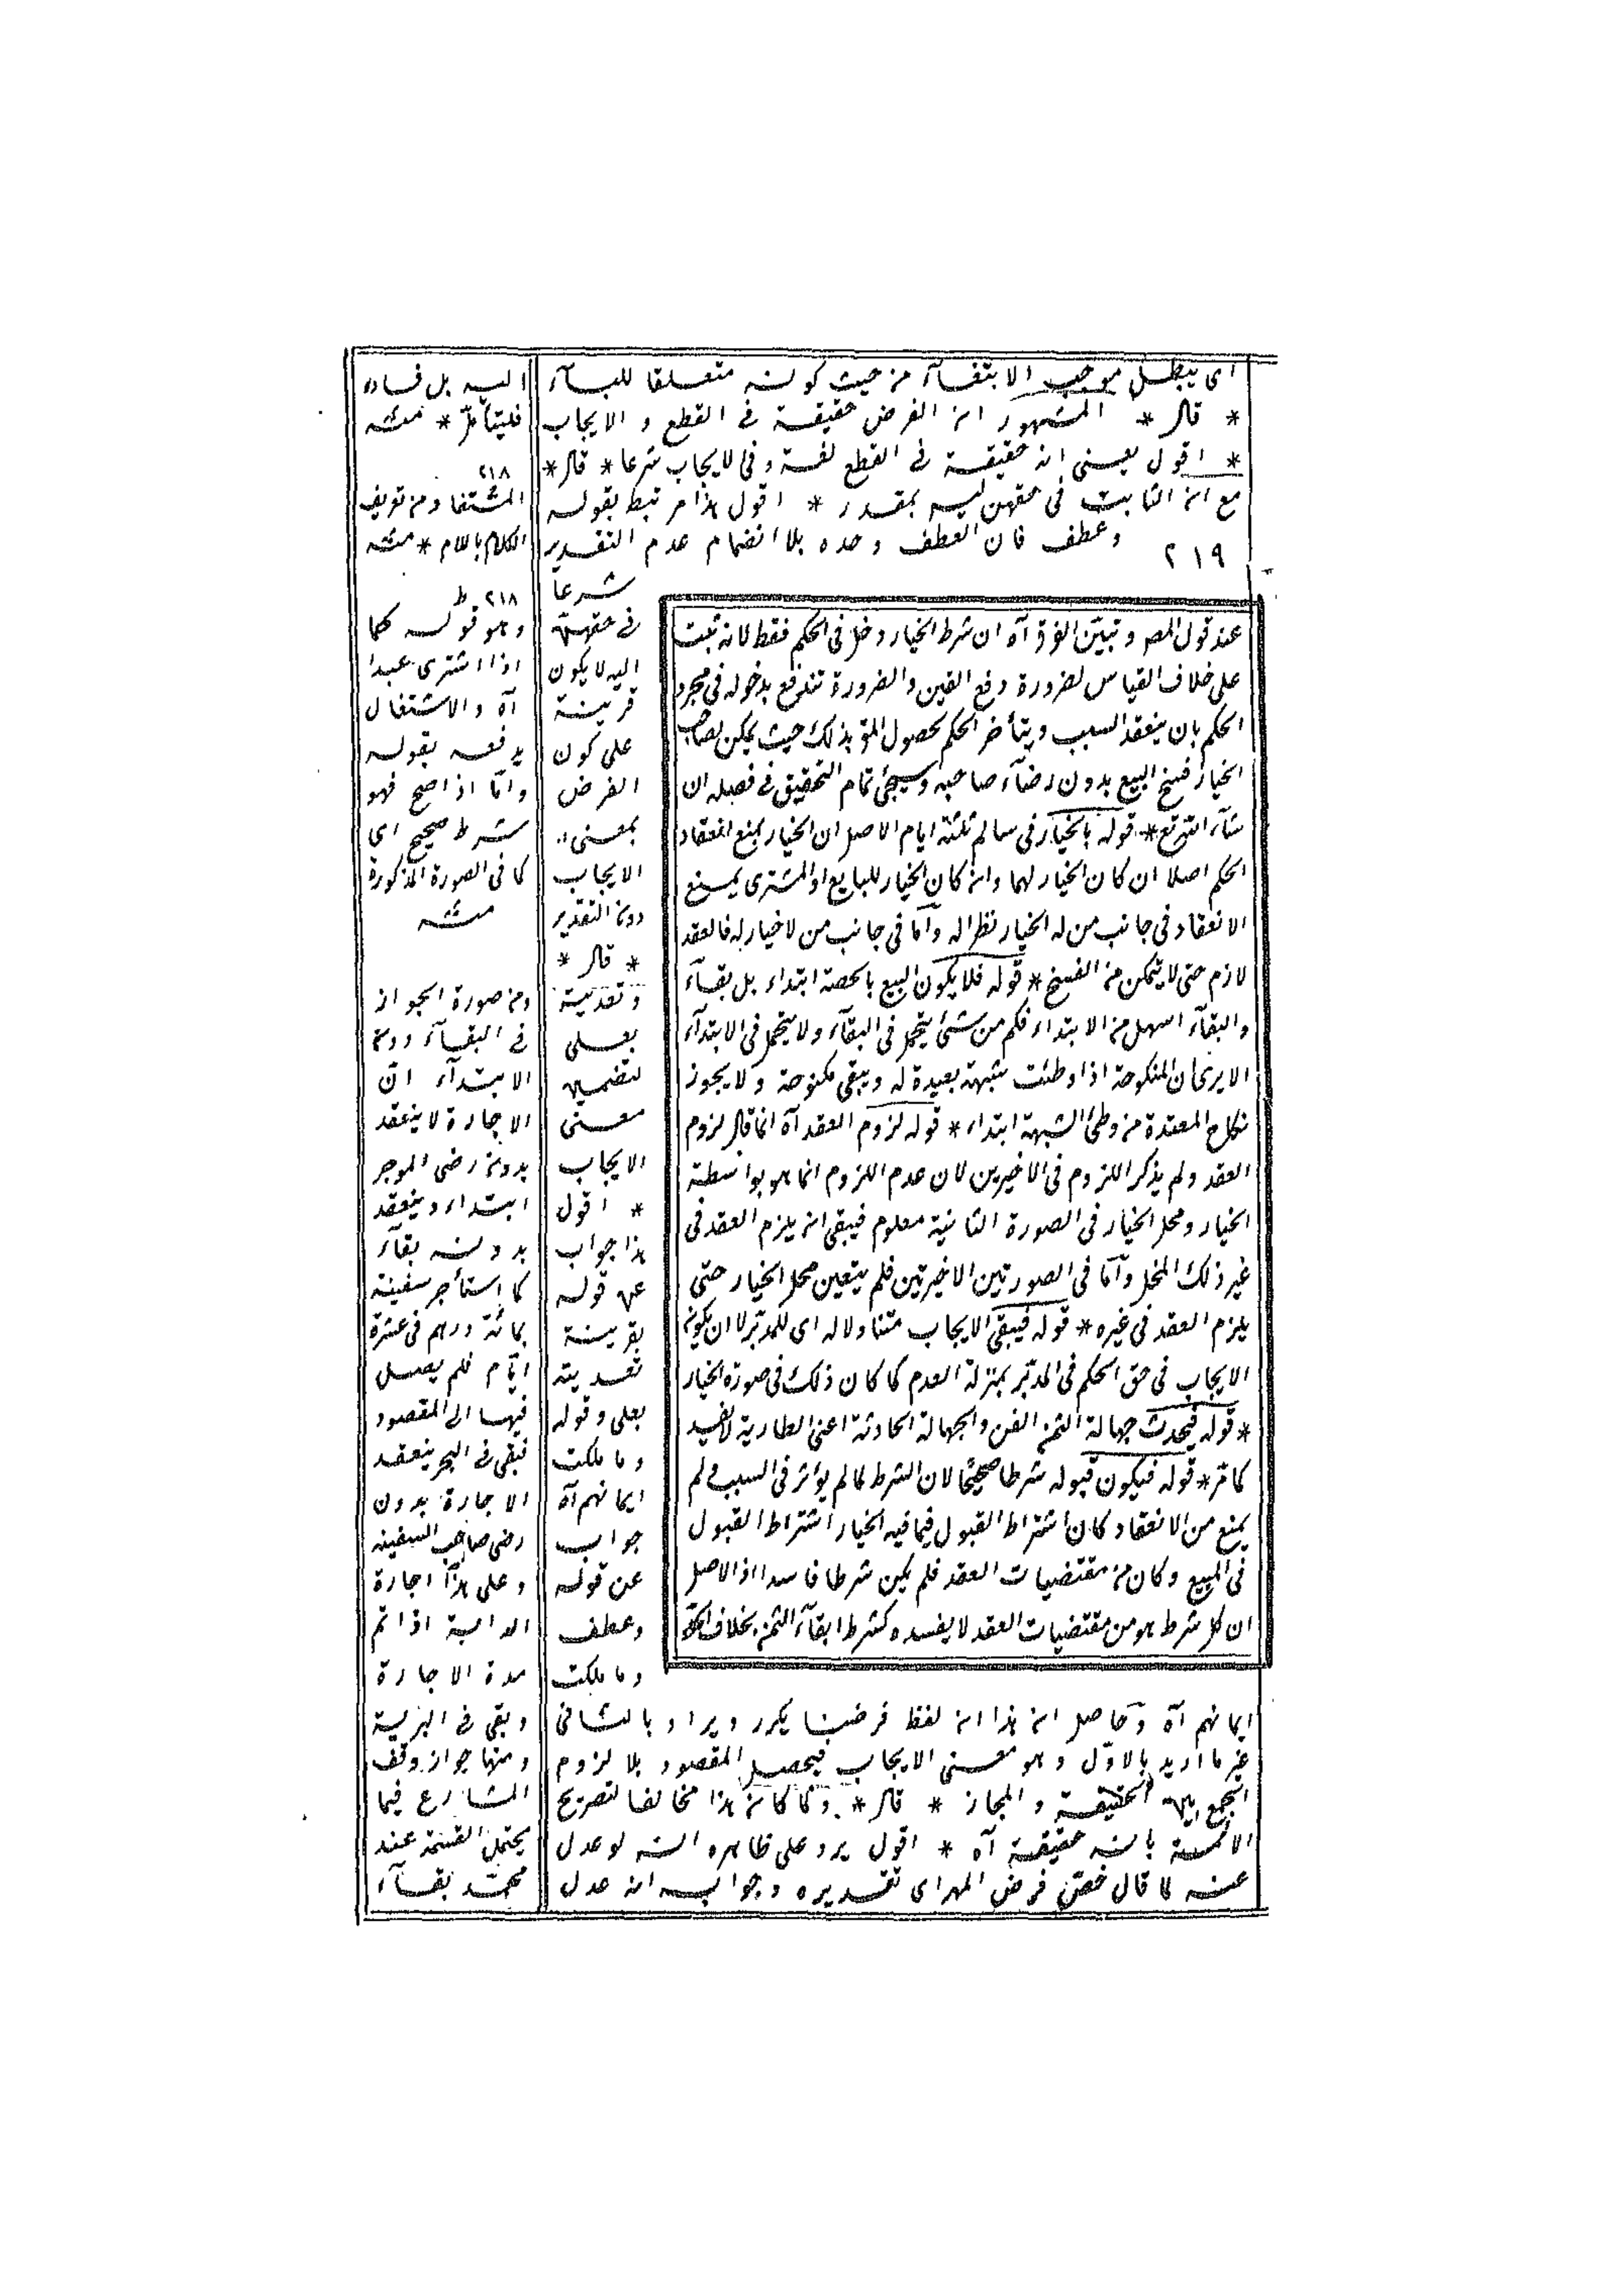 اى يبطل موجب الابتغاء من حيث كونه متعلقا للباء
* قال * المشهور ان الفرض حقيقة فى القطع و الايجاب
* اقول يعنى انه حقيقة فى القطع لغة وفى الايجاب شرعا * قال *
مع ان الثابت فى حقهن ليس بمقدر * اقول هذا مرتبط بقوله
وعطف فان العطف وحده بلا انضمام عدم التقدير
٢١٩
شرعا
فى حقهن
اليه لا يكون
قرينة
على كون
الفرض
بمعنى
الايجاب
دون التقدير
* قال *
وتعديته
بعلى
لتضمين
معنى
الايجاب
* اقول
هذا جواب
عن قوله
بقرينة
تعديته
بعلى وقوله
وما ملكت
ايمانهم آه
جواب
عن قوله
وعطف
وما ملكت
ايمانهم آه وحاصل ان هذا ان لفظ فرضنا يكرر ويراد بالثانى
غير ما اريد بالاول وهو معنى الايجاب فيحصل المقصود بلا لزوم
الجمع بين الحقيقة و المجاز * قال * ولما كان هذا مخالفا لتصريح
الائمة بانه حقيقة آه * اقول يرد على ظاهره انه لو عدل
عنه لما قال خص فرض المهر اى تقديره وجوابه انه عدل
عند قول المص وتبين الفرق آه ان شرط الخيار دخل فى الحكم فقط لانه ثبت
على خلاف القياس لضرورة دفع الغبن والضرورة تندفع بدخوله فى مجرد
الحكم بان ينعقد السبب ويتأخر الحكم لحصول المقـ بذلك حيث يمكن لصاحب
الخيار فسخ البيع بدون رضاء صاحبه وسيجئ تمام التحقيق فى فصله ان
شاء الله تع * قوله بالخيار فى سالم ثلثة ايام الاصل ان الخيار يمنع انعقاد
الحكم اصلا ان كان الخيار لهما وان كان الخيار للبايع او المشترى يمنع
الانعقاد فى جانب من له الخيار نظرا له واما فى جانب من لا خيار له فالعقد
لازم حتى لا يتمكن من الفسخ * قوله فلا يكون البيع بالحصة ابتداء بل بقاء
والبقاء اسهل من الابتداء فكم من شئ يتحمل فى البقاء ولا يتحمل فى الابتداء
الا يرى ان المنكوحة اذا وطئت بشبهة بعيدة له ويبقى منكوحة ولا يجوز
نكاح المعتدة من وطئ الشبهة ابتداء * قوله لزوم العقد آه انما قال لزوم
العقد ولم يذكر اللزوم فى الاخيرين لان عدم اللزوم انما هو بواسطة
الخيار ومحل الخيار فى الصورة الثانية معلوم فيبقى ان يلزم العقد فى
غير ذلك المحل واما فى الصورتين الاخيرتين فلم يتعين محل الخيار حتى
يلزم العقد فى غيره * قوله فيبقى الايجاب متناولا له اى للمدبر لا ان يكون
الايجاب فى حق الحكم فى المدبر بمنزلة العدم كما كان ذلك فى صورة الخيار
* قوله فيحدث جهالة الثمن الغن والجهالة الحادثة اعنى الطارية لا تفسيد
كما مر * قوله فيكون قبوله شرطا صحيحا لان الشرط لما لم يؤثر فى السبب ولم
يمنع من الانعقاد كان اشتراط القبول فيما فيه الخيار اشتراط القبول
فى المبيع وكان من مقتضيات العقد فلم يكن شرطا فاسدا اذ الاصل
ان كل شرط هو من مقتضيات العقد لا يفسده كشرط ايفاء الثمن بخلاف
اليه بل فساده
فليتأمل * منه
٢١٨
المشتغا ومن تعريف
الكلام باللام * منه
٢١٨ ط
وهو قوله كما
اذا اشترى عبدا
آه والاشتغال
يدفعه بقوله
واما اذا صح فهو
شرط صحيح اى
كما فى الصورة المذكورة
منه
ومن صورة الجواز
فى البقاء دون
الابتداء ان
الاجارة لا ينعقد
بدون رضى الموجر
ابتداء وينعقد
بدونه بقاء
كما استأجر سفينة
بمائة درهم فى عشرة
ايام فلم يصل
فيها الى المقصود
فبقى فى البحر ينعقد
الاجارة بدون
رضى صاحب السفينه
وعلى هذا اجارة
الدابة اذا تم
مدة الاجارة
وبقى فى البرية
ومنها جواز وقف
المشارع فيما
يحتمل القسمة عند
محمد بقاء